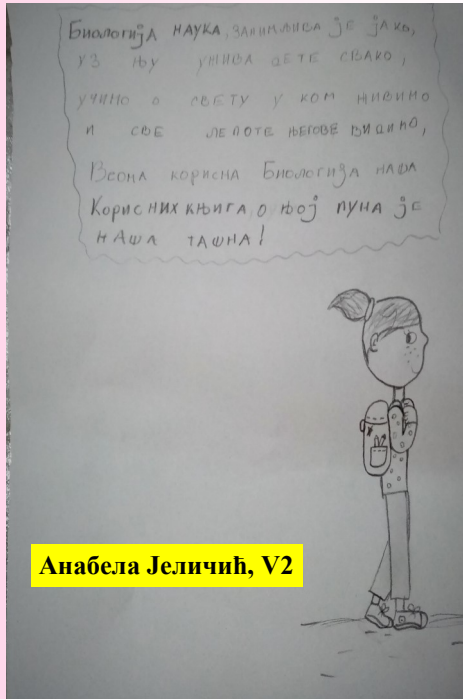 БиологијА НАУКА, ЗАНИМЉИВА ЈЕ ЈАКО,
УЗ ЊУ УЖИВА ДЕТЕ СВАКО,
УЧИМО О СВЕТУ У КОМ ЖИВИМО
И СВЕ ЛЕПОТЕ ЊЕГОВЕ ВИДИМО,
Веома корисна Биологија наша
Корисних књига о њој пуна је
наша ташна!
Анабела Јеличић, V2